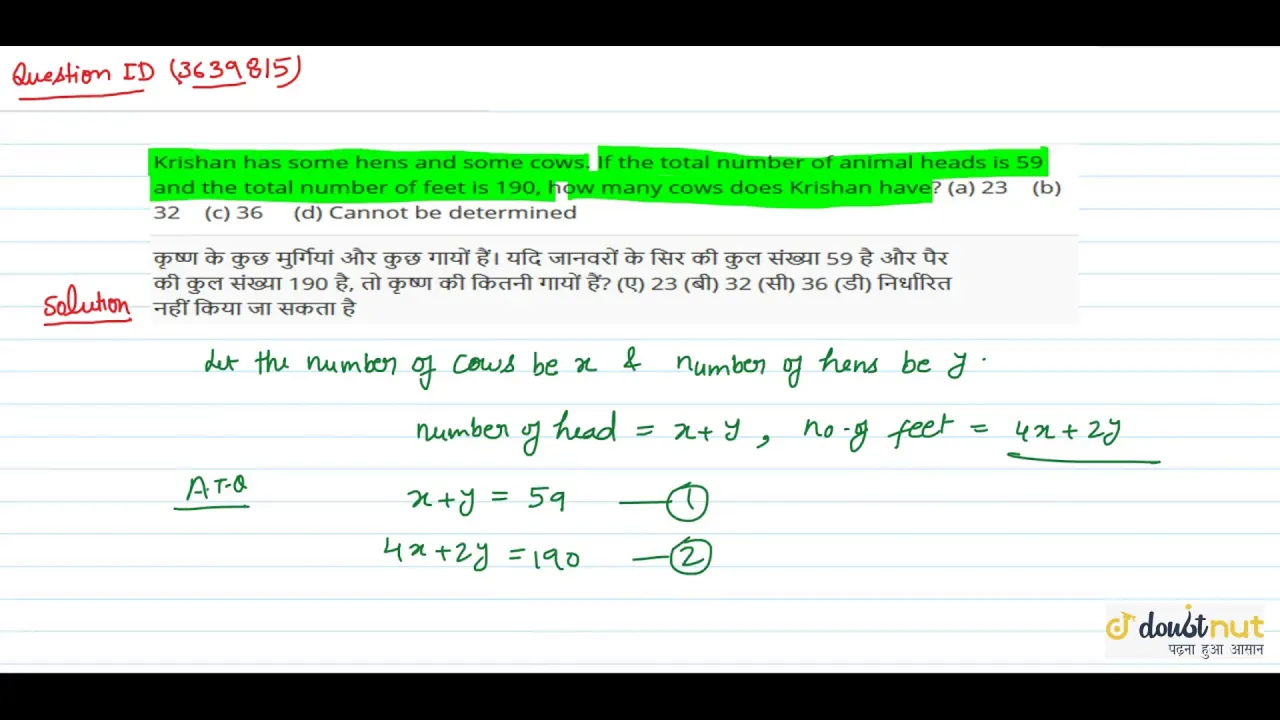 Question ID (3639815)
Krishan has some hens and some cows. If the total number of animal heads is 59
and the total number of feet is 190, how many cows does Krishan have? (a) 23 (b)
32 (c) 36 (d) Cannot be determined
कृष्ण के कुछ मुर्गियां और कुछ गायों हैं। यदि जानवरों के सिर की कुल संख्या 59 है और पैर
की कुल संख्या 190 है, तो कृष्ण की कितनी गायों हैं? (ए) 23 (बी) 32 (सी) 36 (डी) निर्धारित
नहीं किया जा सकता है
Solution
Let the number of cows be x & number of hens be y.
number of head = x+y, no. of feet = 4x+2y
A.T.Q
x+y = 59 — 1
4x+2y = 190 — 2
doubtnut
पढ़ना हुआ आसान